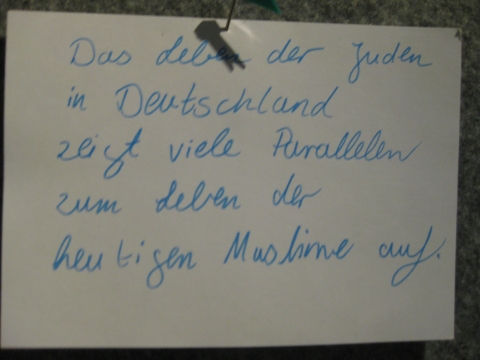 Das Leben der Juden
in Deutschland
zeigt viele Parallelen
zum Leben der
heutigen Muslime auf.